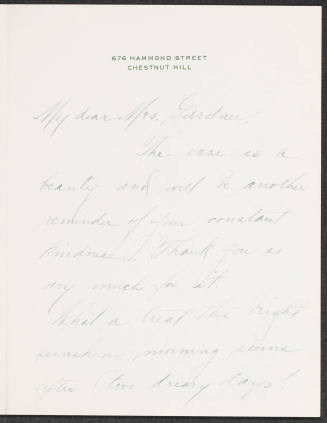 676 HAMMOND STREET
CHESTNUT HILL
My dear Mrs. Gardner.
The vase is a
beauty and will be another
reminder of your constant
kindness. Thank you so
very much for it.
What a treat this bright
sunshiny morning seems
after two dreary days!